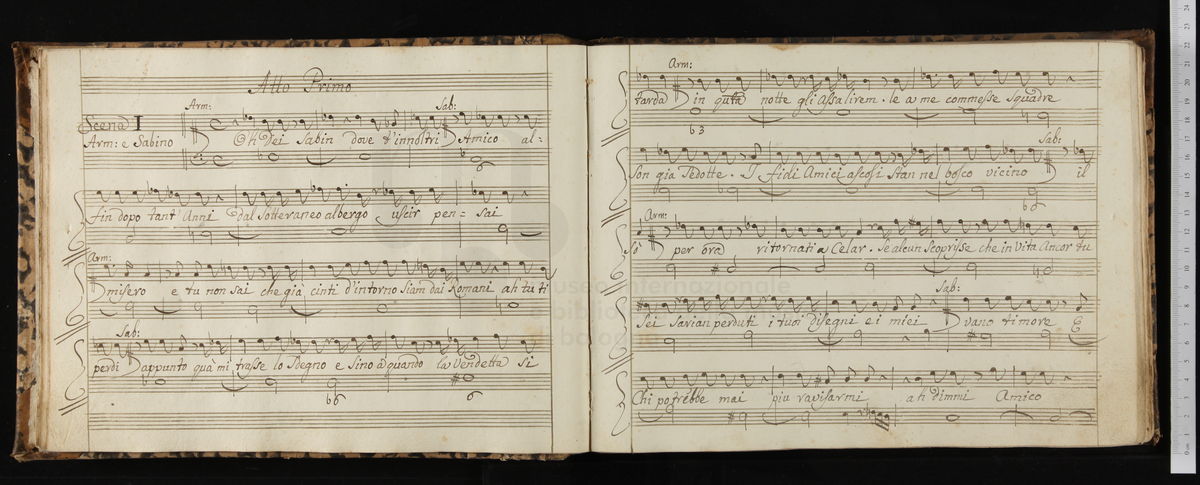 Atto Primo
Arm: Sab:
Scena I
Arm: e Sabino Oh Dei Sabin dove t'innoltri Amico al=
fin dopo tant' Anni dal sotteraneo albergo uscir pen= sai
Arm:
misero e tu non sai che già cinti d'intorno siam dai Romani ah tu ti
Sab:
perdi appunto quà mi trasse lo Sdegno e sino a quando la Vendetta si
Arm:
tarda in qsta notte gli assalirem. le a me commesse squadre
Sab:
son già Sedotte. I fidi Amici ascosi stan nel bosco vicino il
Arm:
sò per ora ritornati a Celar. se alcun scoprisse che in Vita Ancor tu
Sab:
sei sarian perduti i tuoi disegni e i miei vano timore E
Chi potrebbe mai piu ravisarmi ah dimmi Amico